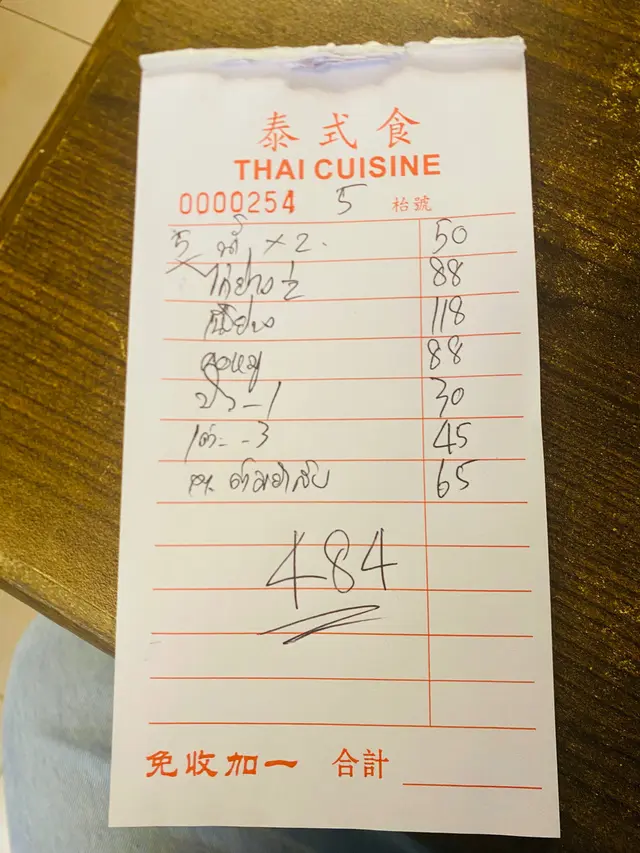 泰式食
THAI CUISINE
0000254 5 枱號
x 2. 50
ไก่ย่าง ½ 88
118
คอหมู 88
-1 30
-3 45
65
484
免收加一 合計